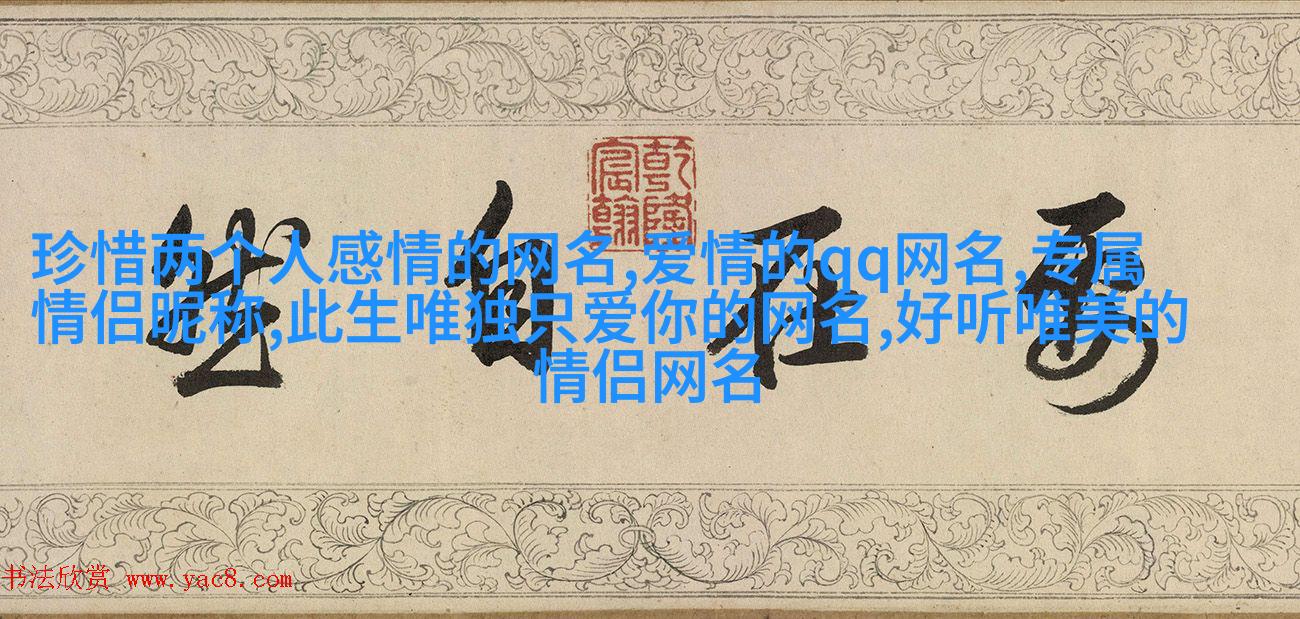 乾隆宸翰
珍惜两个人感情的网名,爱情的qq网名,专属
情侣昵称,此生唯独只爱你的网名,好听唯美的
情侣网名
书法欣赏 www.yac8.com